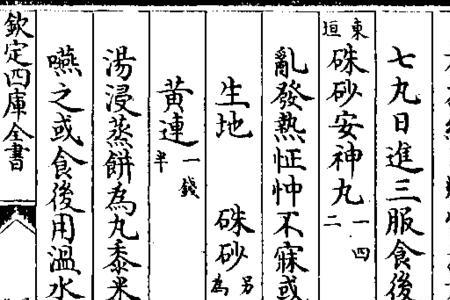 七丸日進三服食後
東垣硃砂安神丸一四二
亂發熱怔忡不寐或
生地 硃砂另為
黃連一錢半
湯浸蒸餅為丸黍米
嚥之或食後用溫水
欽定四庫全書